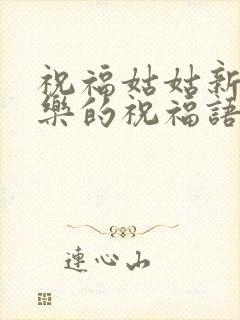 祝福姑姑新
樂的祝福語
連心山